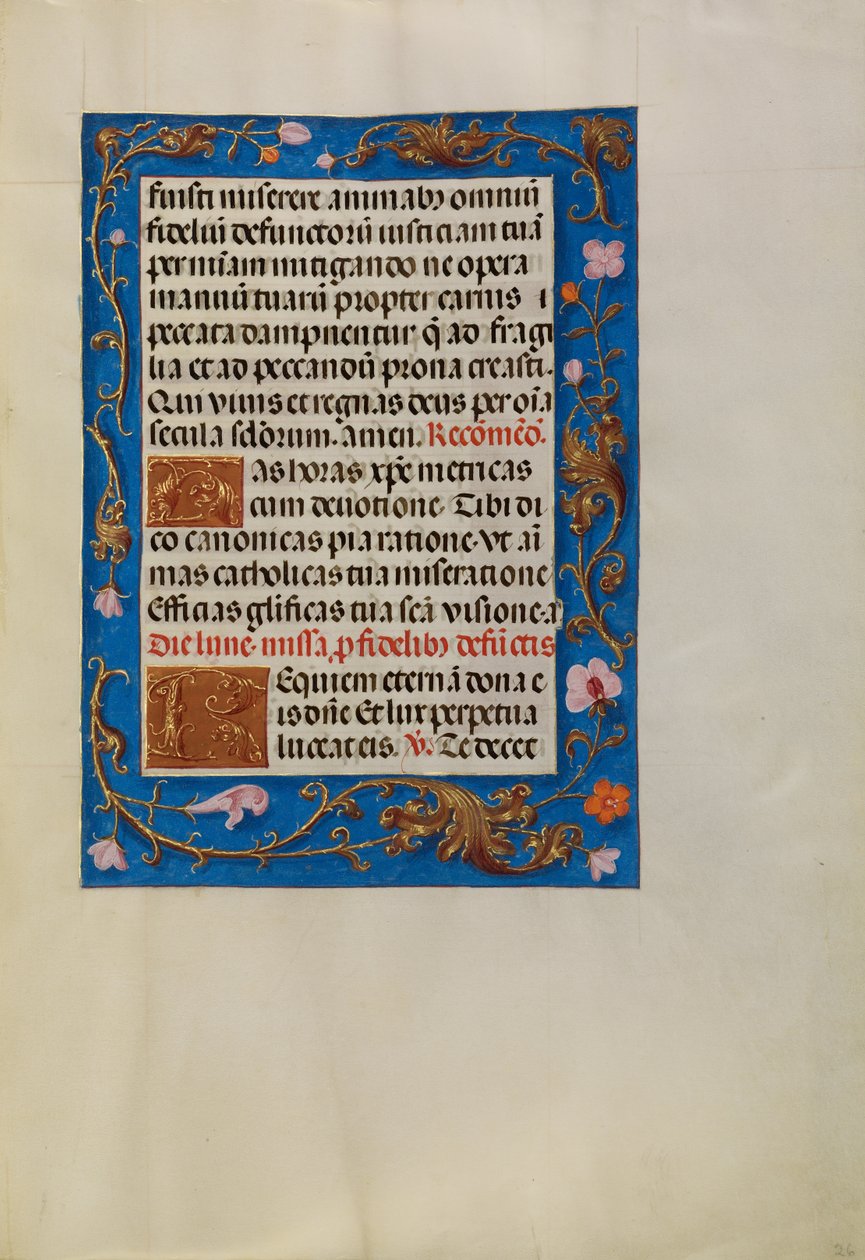 fuisti miserere animabꝯ omniū
fideliū defunctorū iusticiam tuā
per mīam mitigando ne opera
manuū tuarū propter earius i
peccata dampnentur q̄ ad fragi
lia et ad peccandū prona creasti.
Qui viuis et regnas deus per oīa
secula sc̄lorum. amen. Recōmēd̄.
Has horas xp̄e metricas
cum deuotione. Tibi di
co canonicas pia ratione. vt aī
mas catholicas tua miseratione
Efficias gl̄ificas tua scā visione. a
Die lune. missa ꝓ fidelibꝯ defūctis
Requiem eternā dona e
is dn̄e Et lux perpetua
luceat eis. V̓. Te decet
26